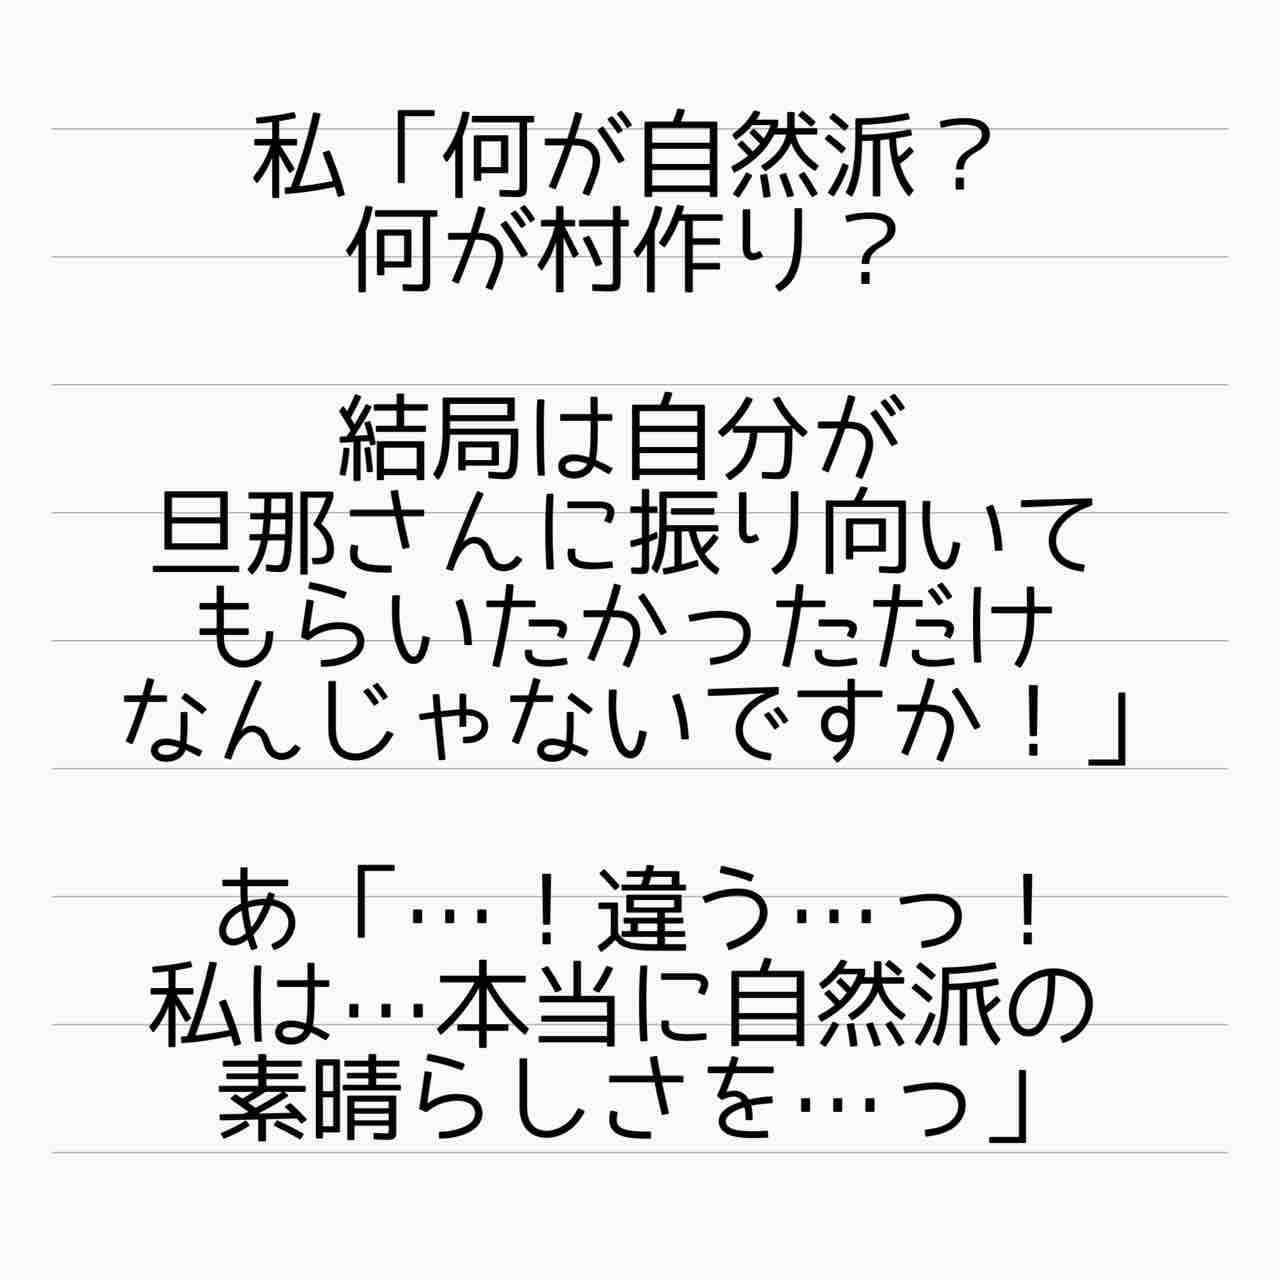 私「何が自然派？
何が村作り？
結局は自分が
旦那さんに振り向いて
もらいたかっただけ
なんじゃないですか！」
あ「…！違う…っ！
私は…本当に自然派の
素晴らしさを…っ」